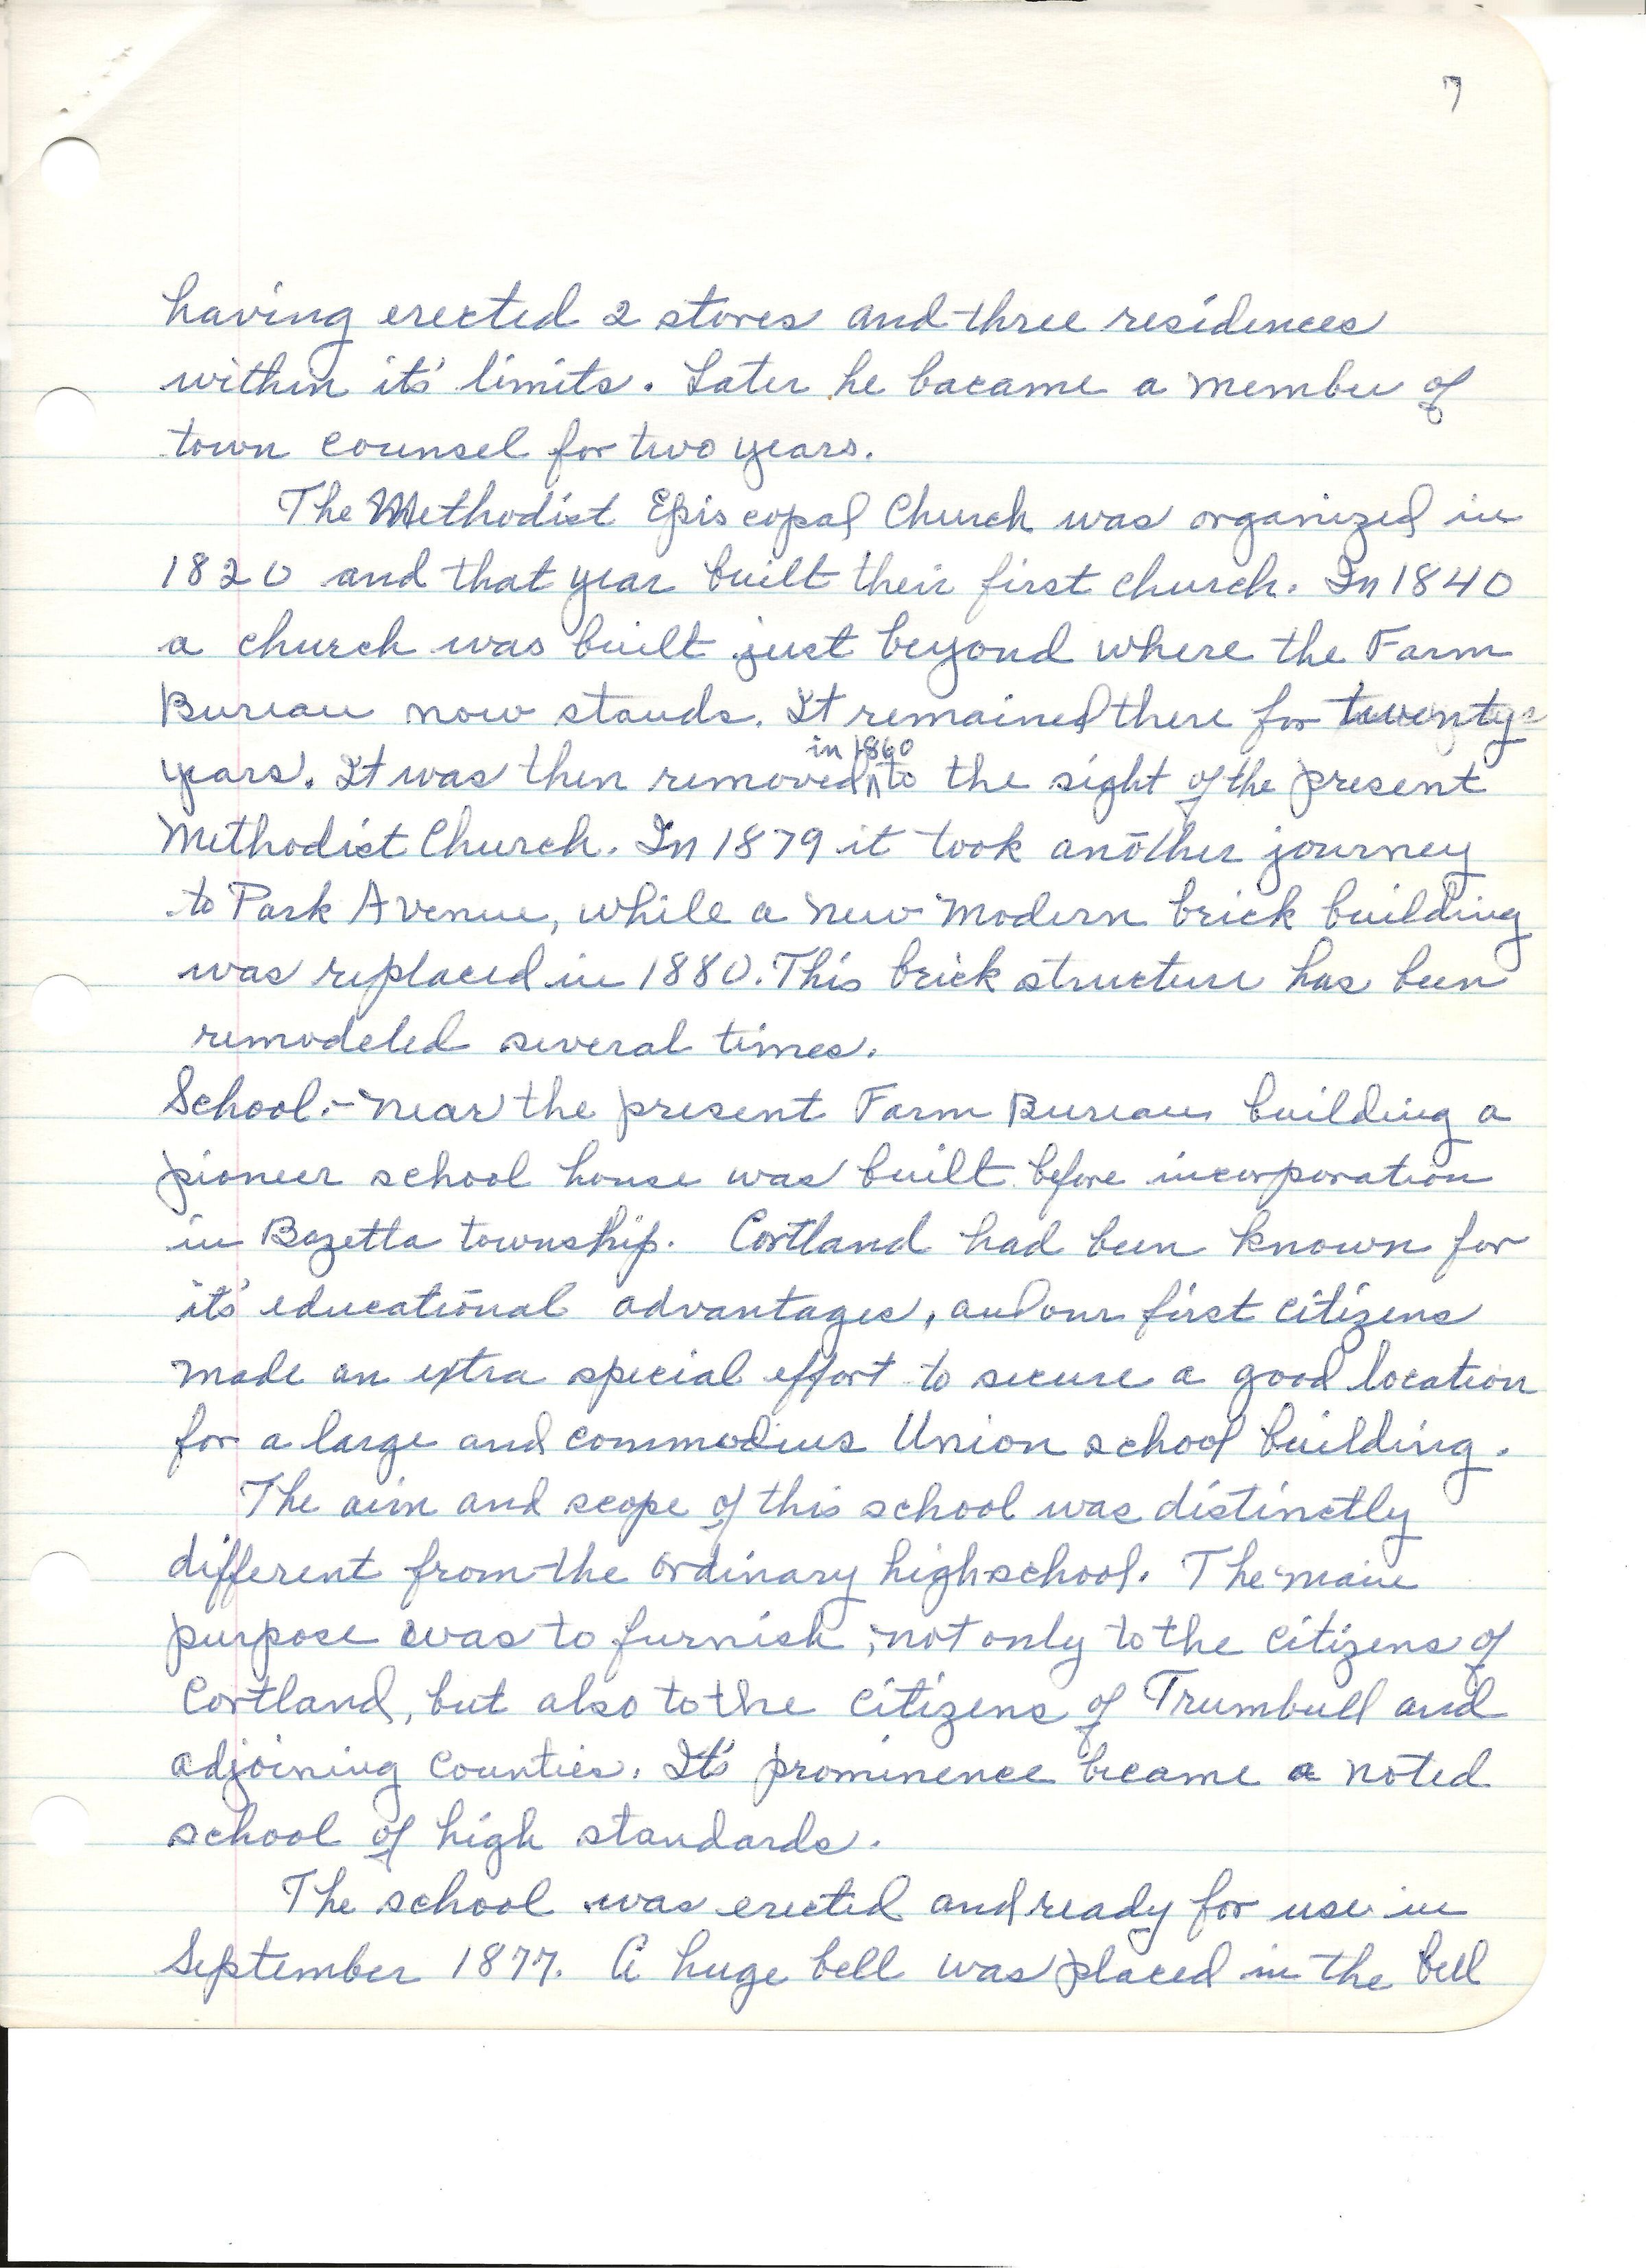 7
having erected 2 stores and three residences
within it's limits. Later he bacame a member of
town counsel for two years.
The Methodist Episcopal Church was organized in
1820 and that year built their first church. In 1840
a church was built just beyond where the Farm
Bureau now stands. It remained there for twenty
in 1860
years. It was then removed ^ to the sight of the present
Methodist Church. In 1879 it took another journey
to Park Avenue, while a new modern brick building
was replaced in 1880. This brick structure has been
remodeled several times.
School:- Near the present Farm Bureau building a
pioneer school house was built before incorporation
in Bazetta township. Cortland had been known for
it's educational advantages, and our first citizens
made an extra special effort to secure a good location
for a large and commodius Union school building.
The aim and scope of this school was distinctly
different from the ordinary highschool. The main
purpose was to furnish, not only to the citizens of
Cortland, but also to the citizens of Trumbull and
adjoining counties. It's prominence became a noted
school of high standards.
The school was erected and ready for use in
September 1877. A huge bell was placed in the bell